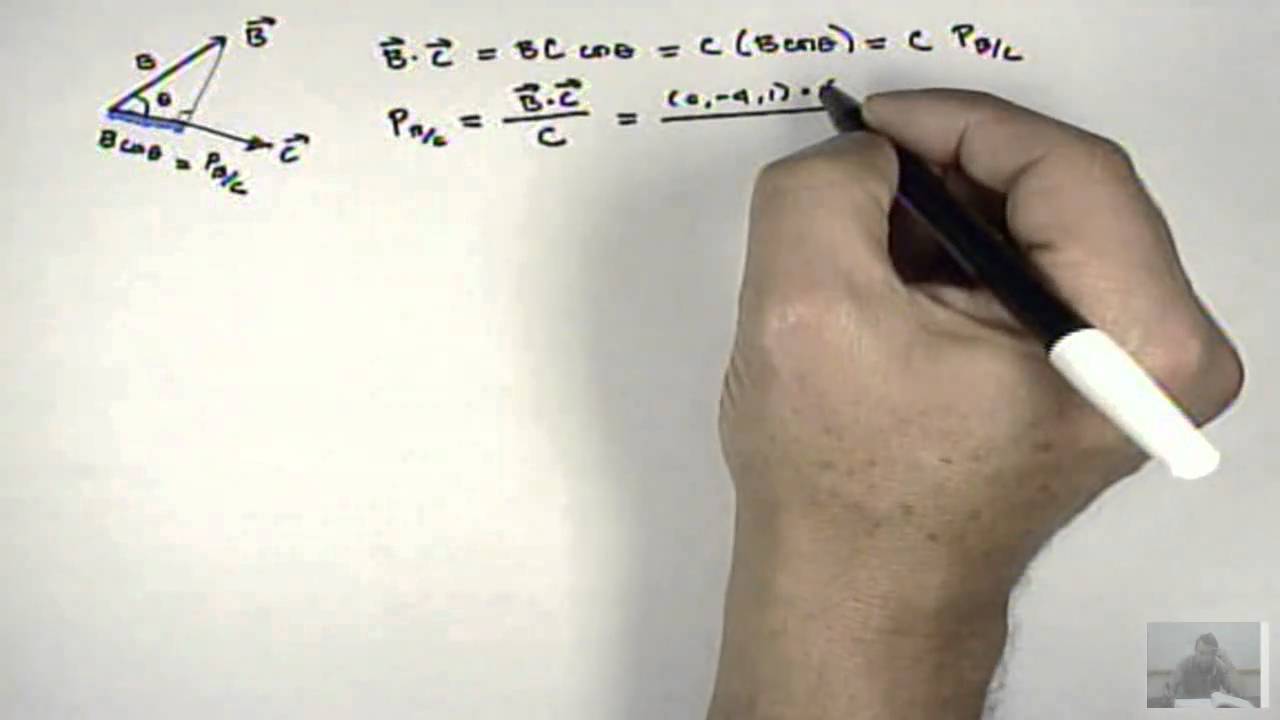 B⃗
B
θ
B cos θ = P_B/C
C⃗
B⃗ · C⃗ = BC cos θ = C (B cos θ) = C P_B/C
P_B/C = B⃗ · C⃗ / C = (0, -4, 1) · (